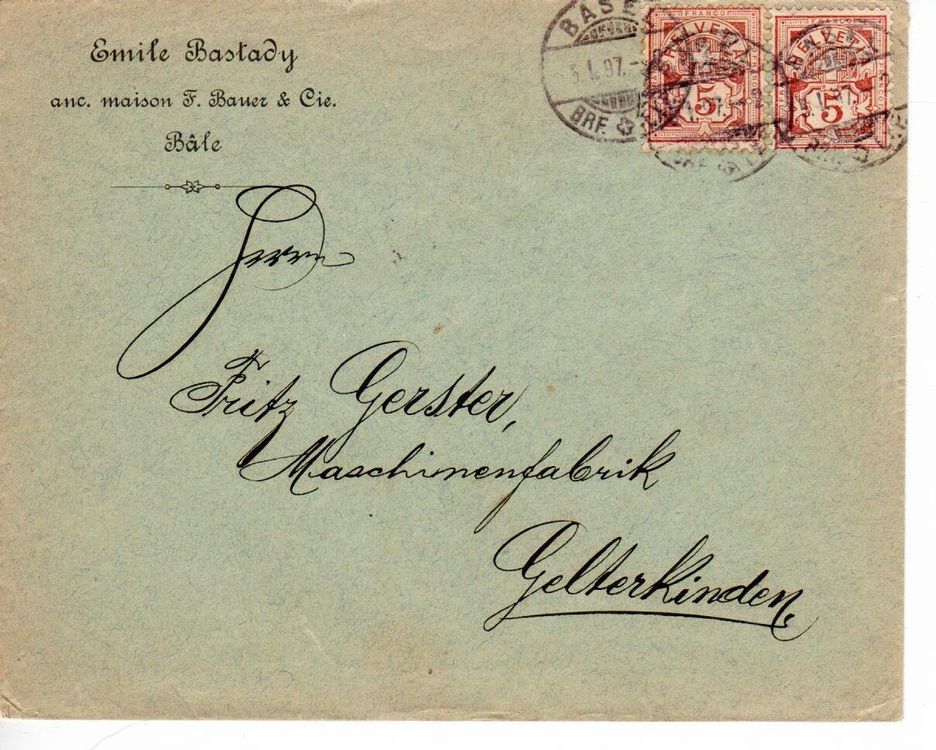 Emile Bastady
anc. maison F. Bauer & Cie.
Bâle
BASEL
5.I.97.
BRF.
FRANCO
HELVETIA
5
FRANCO
HELVETIA
5
Herrn
Fritz Gerster,
Maschinenfabrik
Gelterkinden.